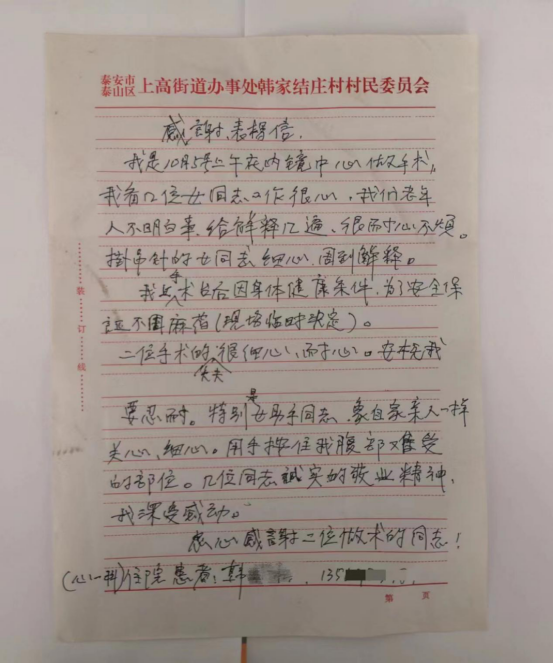 泰安市
泰山区 上高街道办事处韩家结庄村村民委员会
感謝表揚信.
我是10月5号上午在内镜中心做手术,
我看几位女同志工作很心,我们老年
人不明白事,给解释几遍、很而寸心不烦。
掛吊针的女同志细心、周到解释。
我手术台后因身体健康条件,为了安全保
证不用麻药(现场临时决定)。
二位手术的大夫很细心,而寸心。安梡我
要忍耐。特别是女助手同志,象自家亲人一样
关心、细心。用手按住我腹部难受
的部位。几位同志誠实的敬业精神,
我深受感动。
衷心感謝二位做术的同志!
(心一科)住院患者:韩 135
装
订
线
第 页